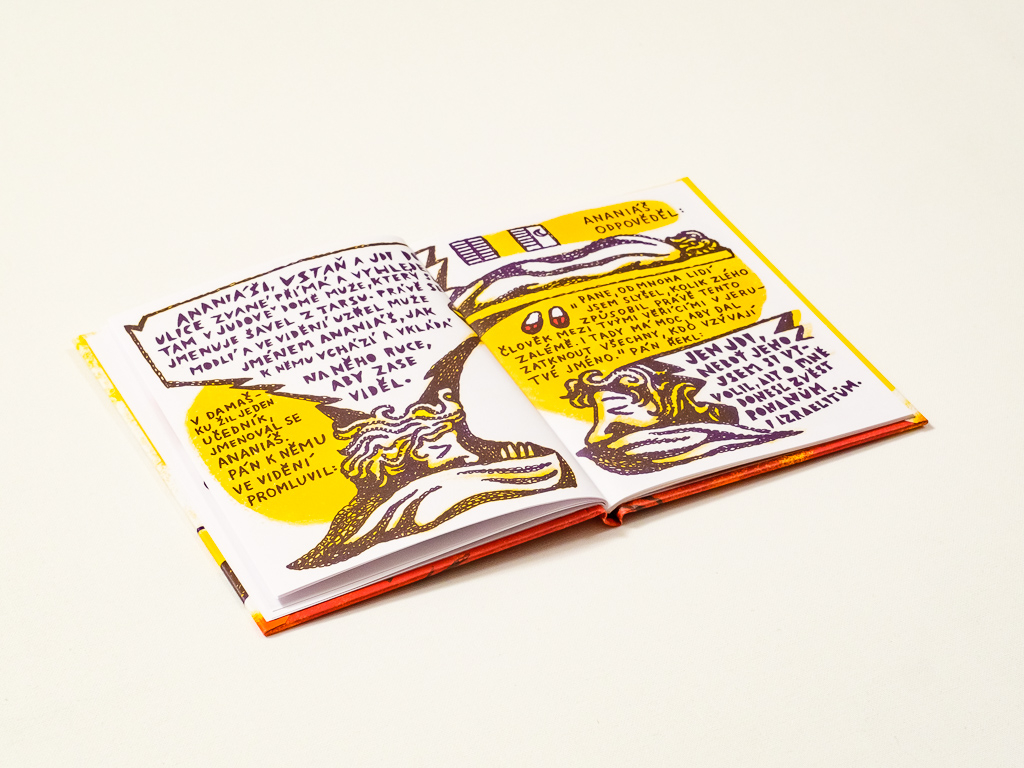 ANANIÁŠI, VSTAŇ A JDI
ULICE ZVANÉ PŘÍMÁ A VYHLEJ
TAM V JUDOVĚ DOMĚ MUŽE, KTERÝ
JMENUJE ŠAVEL Z TARSU: PRÁVĚ
MODLÍ A VE VIDĚNÍ UZŘEL MUŽE
JMÉNEM ANANIÁŠ, JAK
K NĚMU VCHÁZÍ A VKLÁDÁ
NA NĚHO RUCE,
ABY ZASE
VIDĚL.
V DAMAŠ-
KU ŽIL JEDEN
UČEDNÍK,
JMENOVAL SE
ANANIÁŠ.
PÁN K NĚMU
VE VIDĚNÍ
PROMLUVIL:
ANANIÁŠ
ODPOVĚDĚL:
"PANE, OD MNOHA LIDÍ
JSEM SLYŠEL KOLIK ZLÉHO
ZPŮSOBIL PRÁVĚ TENTO
ČLOVĚK MEZI TVÝMI VĚŘÍCÍMI V JERU-
ZALÉMĚ. I TADY MÁ MOC ABY DAL
ZATKNOUT VŠECHNY, KDO VZÝVAJÍ
TVÉ JMÉNO." PÁN ŘEKL:
JEN JDI,
NEBOŤ JEHO
JSEM SI VY-
VOLIL, ABY O MNĚ
DONESL ZVĚST
POHANŮM
I IZRAELITŮM.